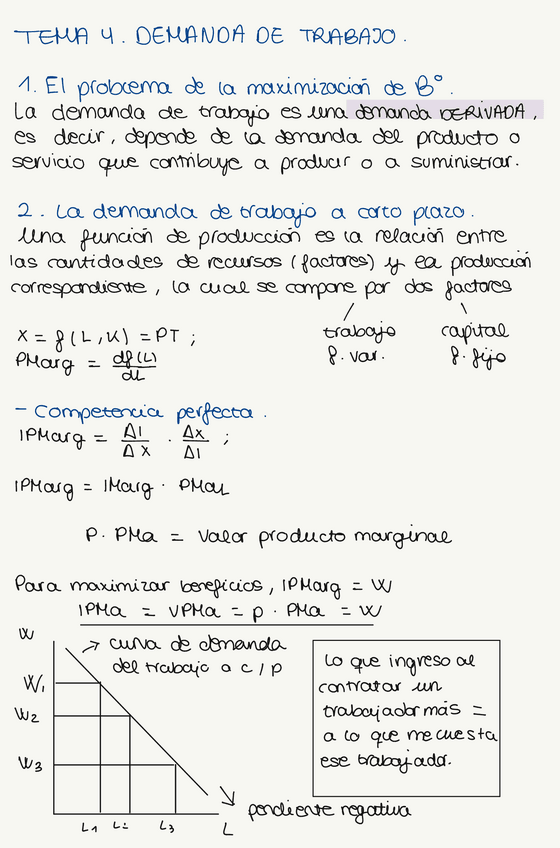 TEMA 4. DEMANDA DE TRABAJO.
1. El problema de la maximización de Bº.
La demanda de trabajo es una demanda DERIVADA,
es decir, depende de la demanda del producto o
servicio que contribuye a producir o a suministrar.
2. La demanda de trabajo a corto plazo.
Una función de producción es la relación entre
las cantidades de recursos (factores) y la producción
correspondiente, la cual se compone por dos factores
trabajo capital
f. var. f. fijo
X = f(L,K) = PT ;
PMarg = df(L)/dL
- Competencia perfecta.
IPMarg = ΔI/ΔX · ΔX/Δl ;
IPMarg = IMarg · PMaL
P. PMa = Valor producto marginal
Para maximizar beneficios, IPMarg = W
IPMa = VPMa = p · PMa = W
W
curva de demanda
del trabajo a c/p
W1
W2
W3
L1 L2 L3 L
pendiente negativa
Lo que ingreso al
contratar un
trabajador más =
a lo que me cuesta
ese trabajador.